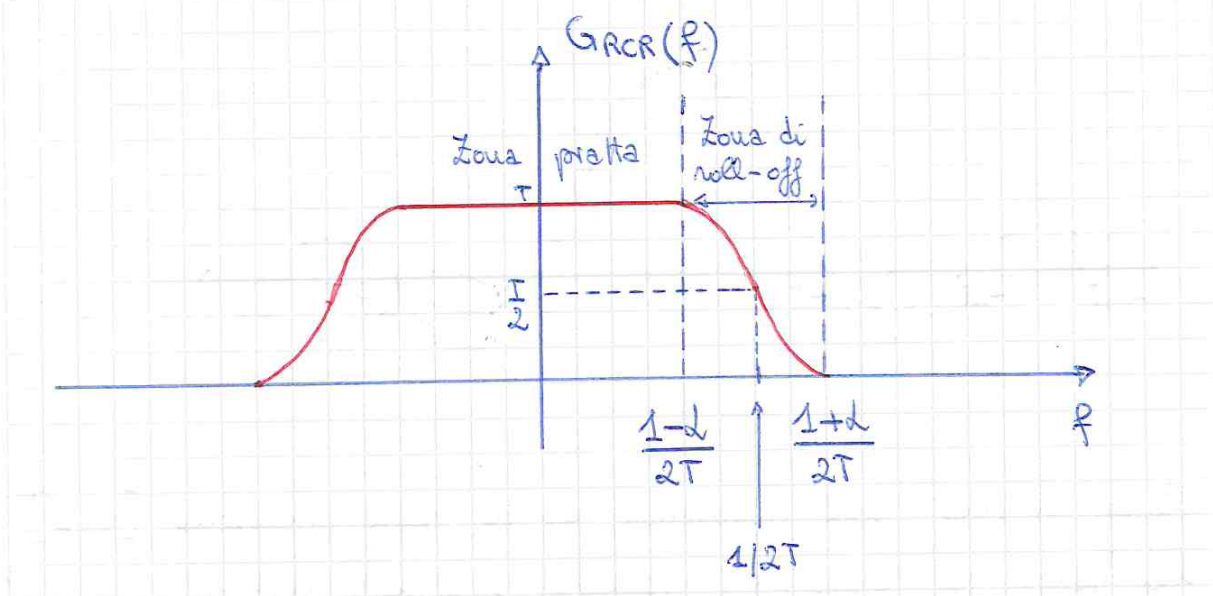 GRCR(f)
Zona piatta
Zona di
roll-off
T
T
2
1-α
2T
1+α
2T
f
1/2T